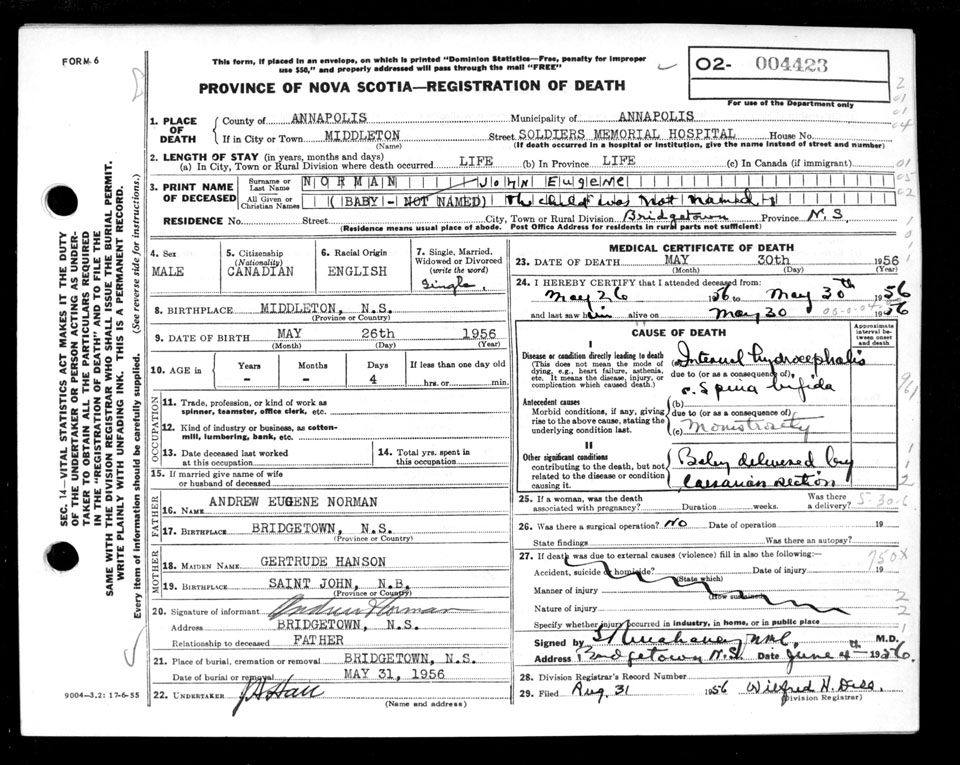 FORM 6
This form, if placed in an envelope, on which is printed "Dominion Statistics—Free, penalty for improper
use $50," and properly addressed will pass through the mail "FREE"
O2- 004423
For use of the Department only
PROVINCE OF NOVA SCOTIA—REGISTRATION OF DEATH
1. PLACE OF DEATH
County of ANNAPOLIS Municipality of ANNAPOLIS
If in City or Town MIDDLETON Street SOLDIERS MEMORIAL HOSPITAL House No.
(Name) (If death occurred in a hospital or institution, give the name instead of street and number)
2. LENGTH OF STAY (in years, months and days)
(a) In City, Town or Rural Division where death occurred LIFE (b) In Province LIFE (c) In Canada (if immigrant)
3. PRINT NAME OF DECEASED
Surname or Last Name NORMAN John Eugene
All Given or Christian Names (BABY - NOT NAMED) The child was not named
RESIDENCE No. Street City, Town or Rural Division Bridgetown Province N.S
(Residence means usual place of abode. Post Office Address for residents in rural parts not sufficient)
4. Sex MALE
5. Citizenship (Nationality) CANADIAN
6. Racial Origin ENGLISH
7. Single, Married, Widowed or Divorced (write the word) Single
8. BIRTHPLACE MIDDLETON, N.S.
(Province or Country)
9. DATE OF BIRTH MAY 26th 1956
(Month) (Day) (Year)
10. AGE in Years Months Days If less than one day old
- - 4 hrs. or min.
OCCUPATION
11. Trade, profession, or kind of work as
spinner, teamster, office clerk, etc.
12. Kind of industry or business, as cotton-
mill, lumbering, bank, etc.
13. Date deceased last worked
at this occupation
14. Total yrs. spent in
this occupation
15. If married give name of wife
or husband of deceased
FATHER
16. NAME ANDREW EUGENE NORMAN
17. BIRTHPLACE BRIDGETOWN, N.S.
(Province or Country)
MOTHER
18. MAIDEN NAME GERTRUDE HANSON
19. BIRTHPLACE SAINT JOHN, N.B.
(Province or Country)
20. Signature of informant Andrew Norman
Address BRIDGETOWN, N.S.
Relationship to deceased FATHER
21. Place of burial, cremation or removal BRIDGETOWN, N.S.
Date of burial or removal MAY 31, 1956
22. UNDERTAKER
(Name and address)
9004—3,2: 17-6-55
MEDICAL CERTIFICATE OF DEATH
23. DATE OF DEATH MAY 30th 1956
(Month) (Day) (Year)
24. I HEREBY CERTIFY that I attended deceased from:
May 26 1956 to May 30th 1956
and last saw him alive on May 30 1956
CAUSE OF DEATH
Approximate interval between onset and death
I
Disease or condition directly leading to death
(This does not mean the mode of
dying, e.g., heart failure, asthenia,
etc. It means the disease, injury, or
complication which caused death.)
(a) Internal hydrocephalis
due to (or as a consequence of)
c. Spina bifida
Antecedent causes
Morbid conditions, if any, giving
rise to the above cause, stating the
underlying condition last.
(b)
due to (or as a consequence of)
(c) Monstrosity
II
Other significant conditions
contributing to the death, but not
related to the disease or condition
causing it.
Baby delivered by
Caesarian section
25. If a woman, was the death
associated with pregnancy? Duration weeks. Was there a delivery?
26. Was there a surgical operation? NO Date of operation 19
State findings Was there an autopsy?
27. If death was due to external causes (violence) fill in also the following:—
Accident, suicide or homicide? Date of injury 19
(State which)
Manner of injury
(How sustained)
Nature of injury
Specify whether injury occurred in industry, in home, or in public place
Signed by M.D.
Address Bridgetown N.S. Date June 4th 1956.
28. Division Registrar's Record Number
29. Filed Aug. 31 1956 Wilfred N.
Division Registrar)
SEC. 14—VITAL STATISTICS ACT MAKES IT THE DUTY
OF THE UNDERTAKER OR PERSON ACTING AS UNDER-
TAKER TO OBTAIN ALL THE PARTICULARS REQUIRED
IN THE "REGISTRATION OF DEATH" AND TO FILE THE
SAME WITH THE DIVISION REGISTRAR WHO SHALL ISSUE THE BURIAL PERMIT.
WRITE PLAINLY WITH UNFADING INK. THIS IS A PERMANENT RECORD.
Every item of information should be carefully supplied. (See reverse side for instructions.)